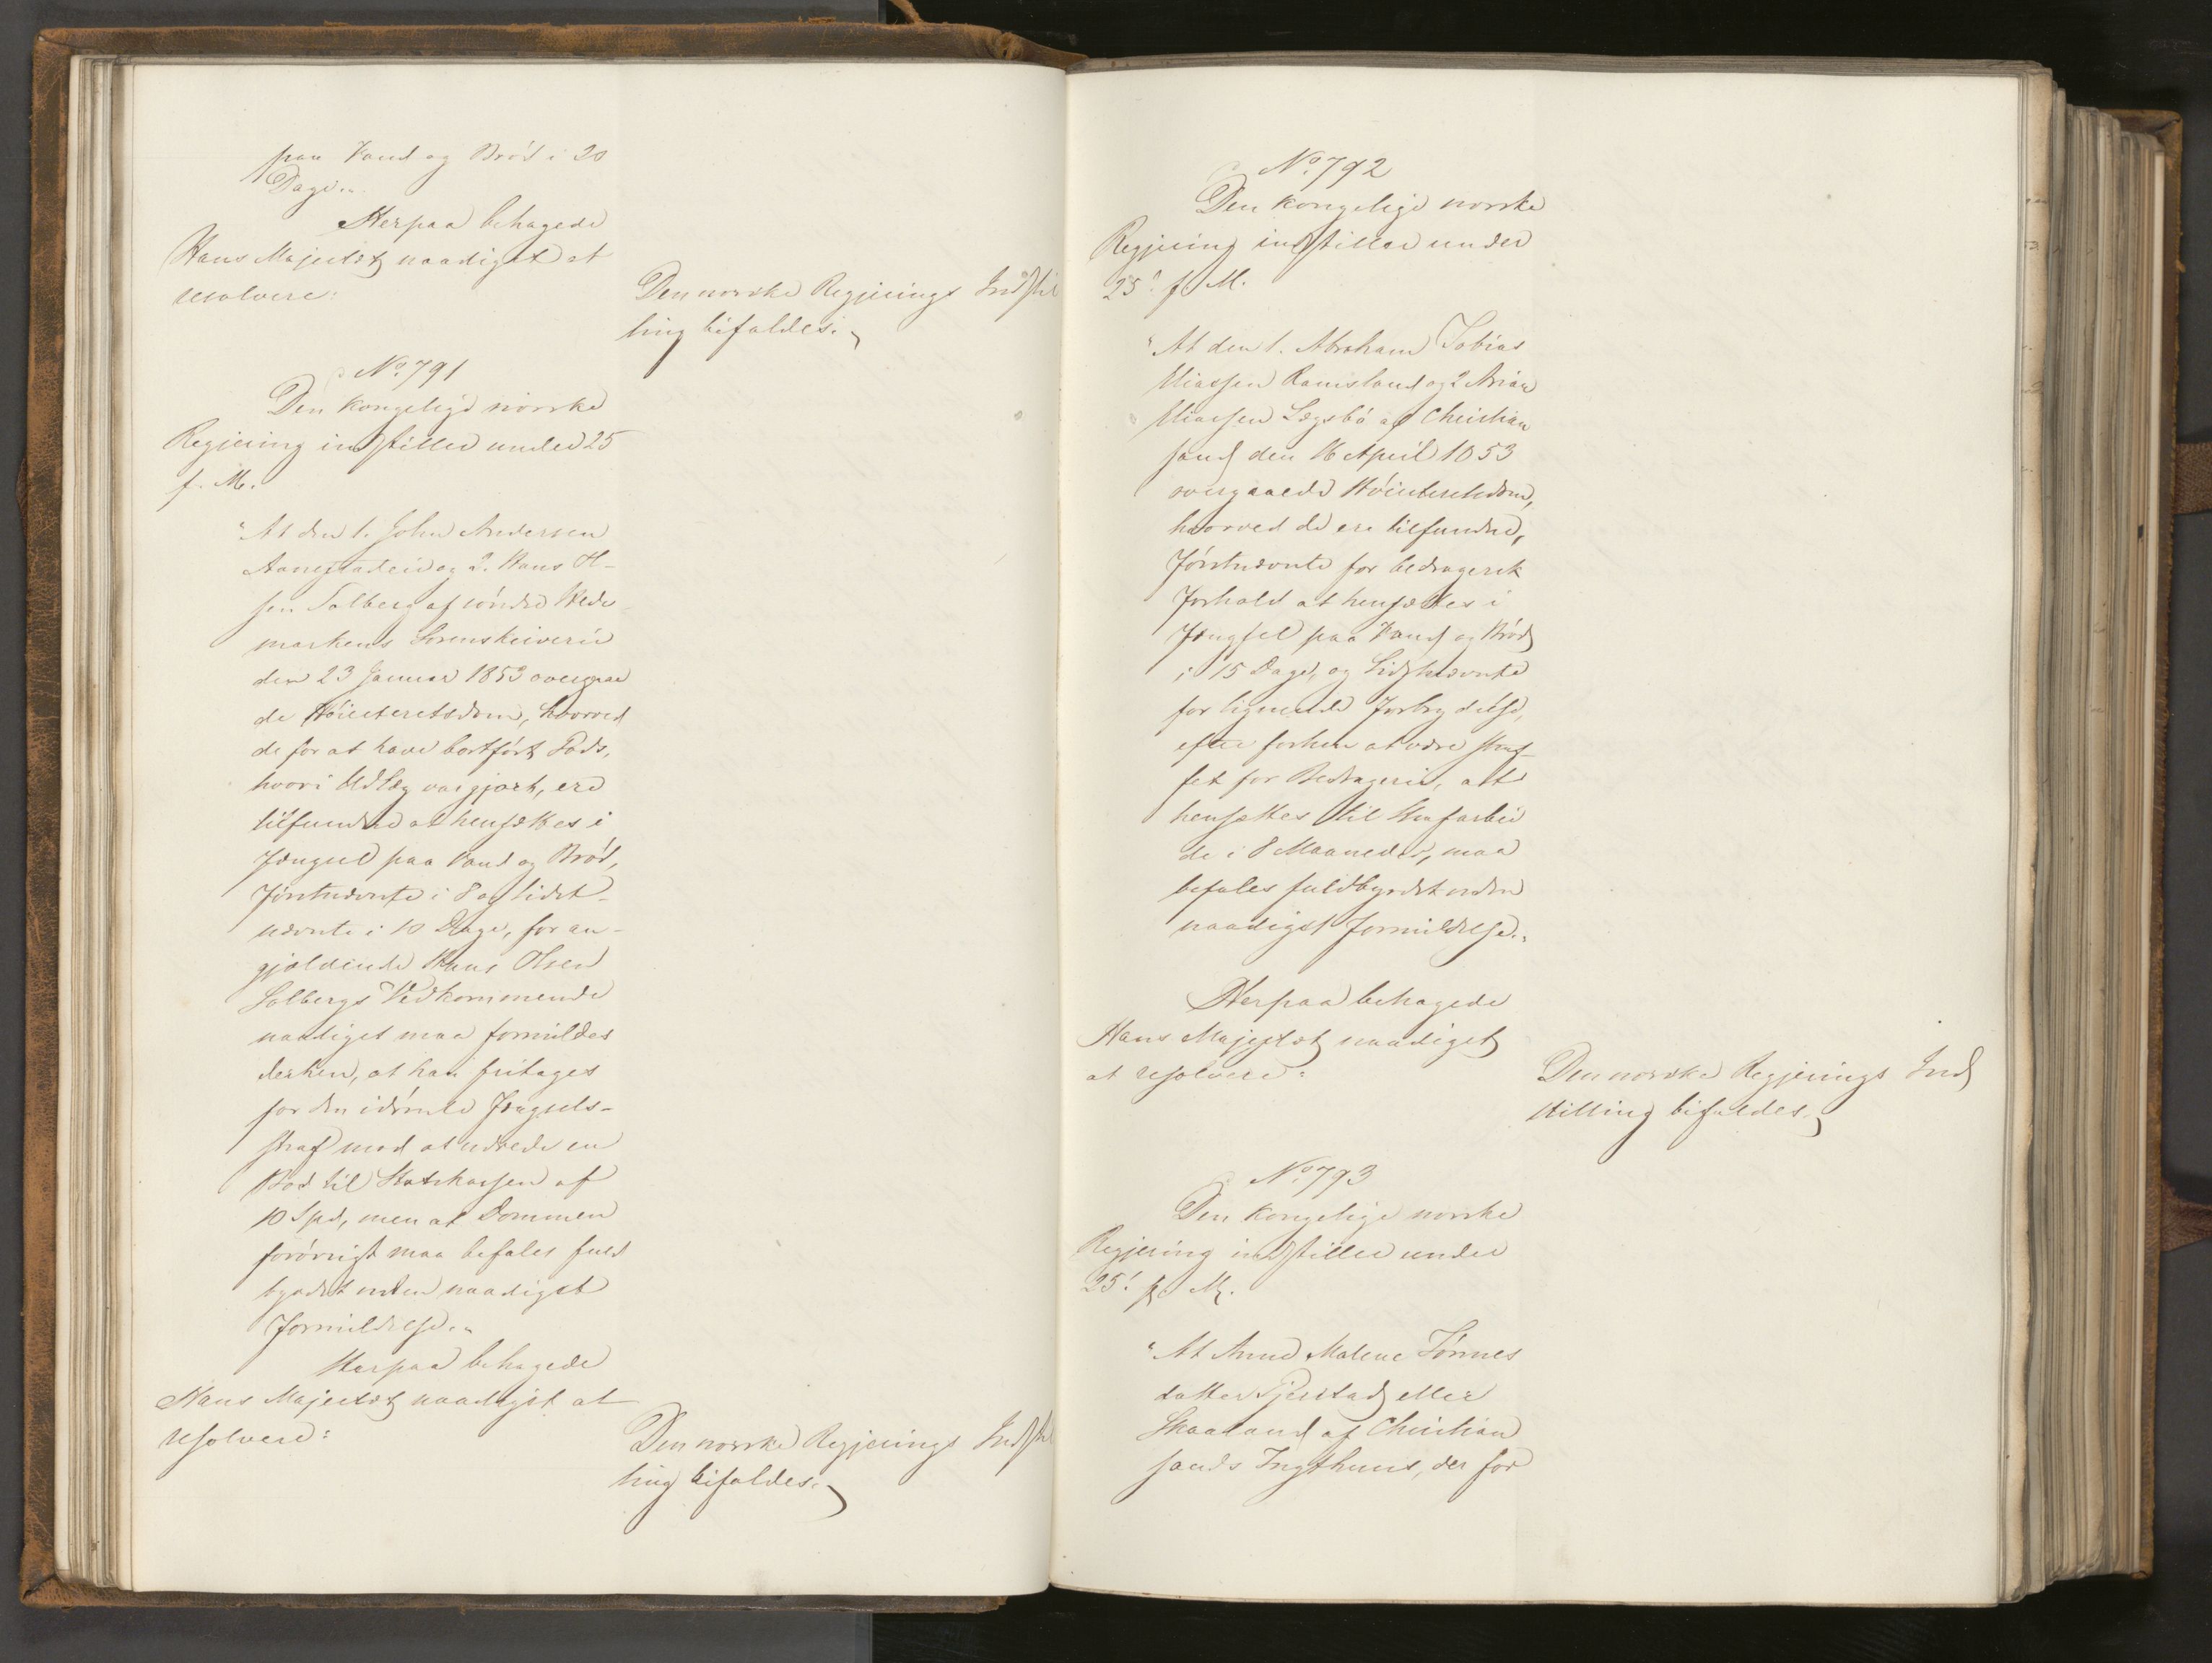 paa Vand og Brød i 20
Dage."
Herpaa behagede
Hans Majestæt naadigst at
resolvere:
Den norske Regjerings Indstil
ling bifaldes.
No. 791
Den kongelige norske
Regjering indstiller under 25
f. M.
"At den 1. John Andersen
og 2. Hans Ol-
sen Solberg af søndre Hede-
markens Sorenskriveri
den 23 Januar 1853 overgaae
de Høiesteretsdom, hvorved
de for at have bortført Gods,
hvori Udlæg var gjort, ere
tilfundne at hensættes i
Fængsel paa Vand og Brød,
Førstnævnte i 8 og Sidst-
nævnte i 10 Dage, for an-
gjældende Hans Olsen
Solbergs Vedkommende
naadigst maa formildes
derhen, at han fritages
for den idømte Fængsels-
straf mod at udrede en
Bod til Statskassen af
10 Spd, men at Dommen
forøvrigt maa befales fuld
byrdet uden naadigst
Formildelse."
Herpaa behagede
Hans Majestæt naadigst at
resolvere:
Den norske Regjerings Indstil
ling bifaldes.
No. 792
Den kongelige norske
Regjering indstiller under
25. f. M.
"At den 1. Abraham Tobias
Miassen Ramsland og 2 Arian
Miassen Lægsbö af Christian
sand den 16 April 1853
overgaaede Høiesteretsdom,
hvorved de ere tilfundne,
Førstnævnte for bedragersk
Forhold at hensættes i
Fængsel paa Vand og Brød
i 15 Dage, og Sidstnævnte
for lignende Forbrydelse,
efter forhen at være straf-
fet for Bedrageri, at
hensættes til Strafarbei
de i 8 Maaneder, maa
befales fuldbyrdet uden
naadigst Formildelse."
Herpaa behagede
Hans Majestæt naadigst
at resolvere:
Den norske Regjerings Ind
stilling bifaldes.
No. 793
Den kongelige norske
Regjering indstiller under
25. f. M.
"At Anne Malene Tönnes
datter Gjerstad eller
Skaaland af Christian
sands Tugthuus, der for